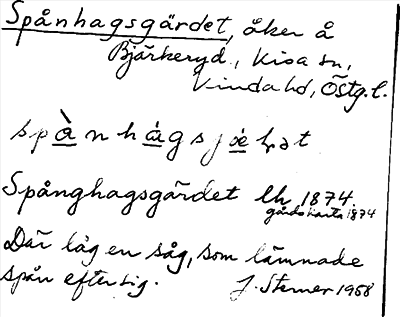 Spånhagsgärdet, åker å
Bjärkeryd, Kisa sn,
Kinda hd, Östg.l.
spànhágsjǽʈət
Spånghagsgärdet lh 1874.
gårdskarta 1874
Där låg en såg, som lämnade
spån efter sig. J. Sterner 1958